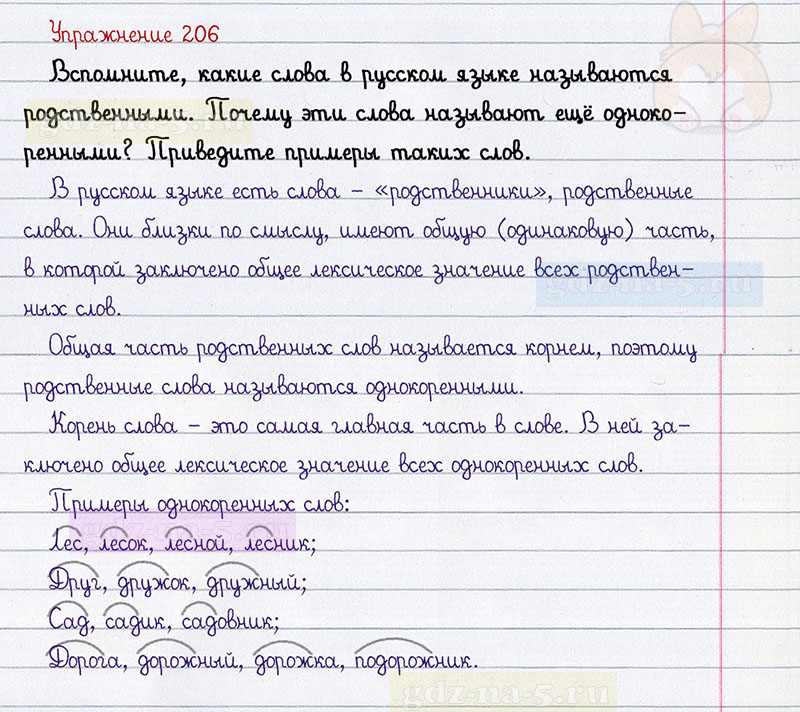 Упражнение 206
Вспомните, какие слова в русском языке называются
родственными. Почему эти слова называют ещё одноко-
ренными? Приведите примеры таких слов.
В русском языке есть слова – «родственники», родственные
слова. Они близки по смыслу, имеют общую (одинаковую) часть,
в которой заключено общее лексическое значение всех родствен-
ных слов.
Общая часть родственных слов называется корнем, поэтому
родственные слова называются однокоренными.
Корень слова – это самая главная часть в слове. В ней за-
ключено общее лексическое значение всех однокоренных слов.
Примеры однокоренных слов:
Лес, лесок, лесной, лесник;
Друг, дружок, дружный;
Сад, садик, садовник;
Дорога, дорожный, дорожка, подорожник.
gdz-na-5.ru
gdz-na-5.ru
gdz-na-5.ru
gdz-na-5.ru